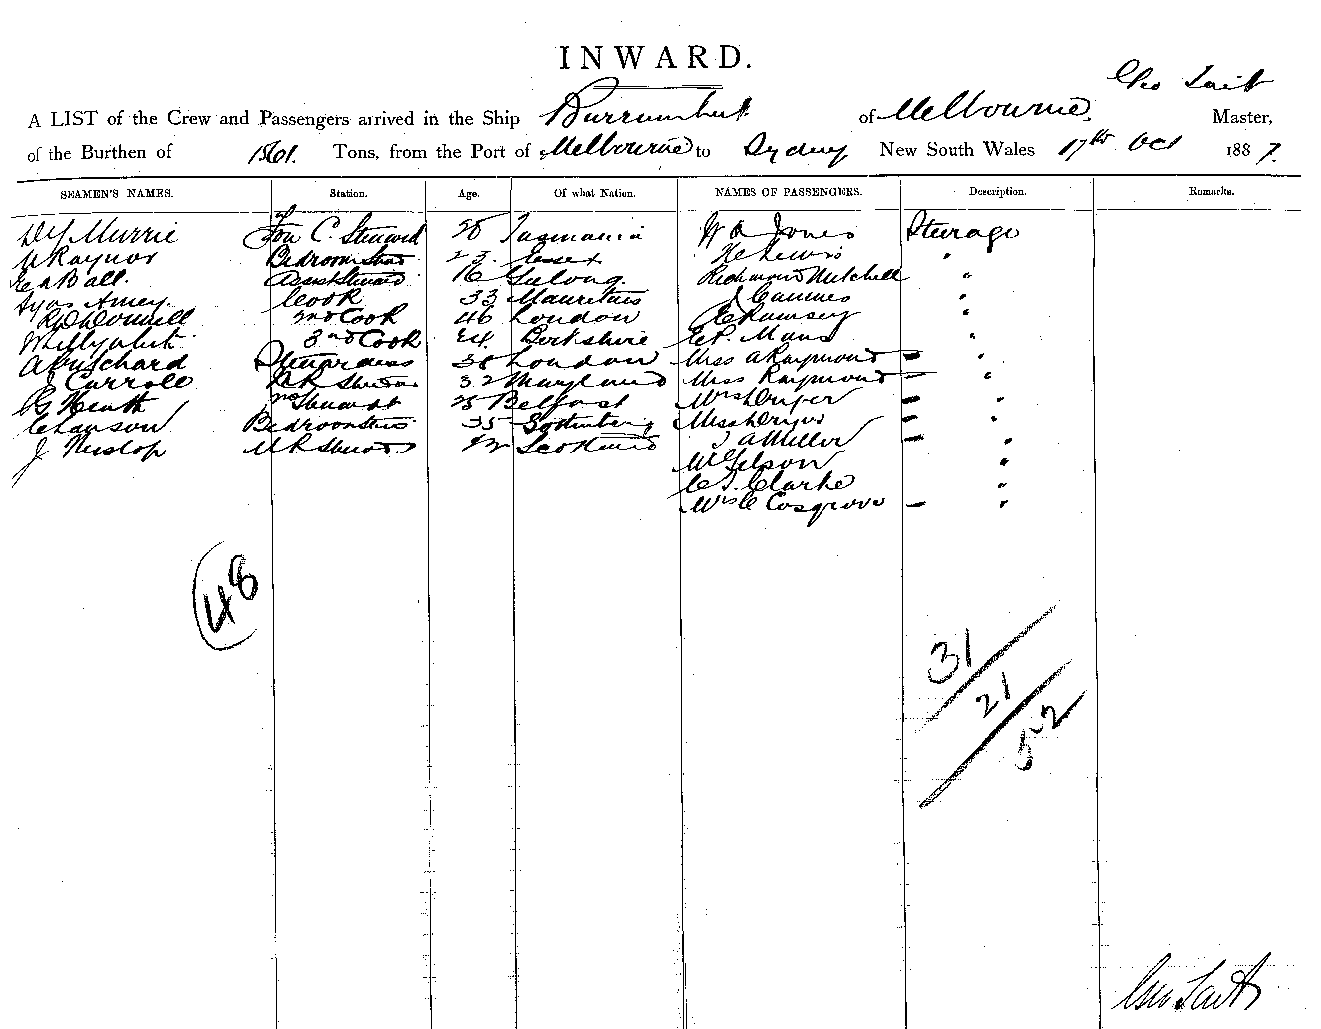 INWARD.
Geo Tait
A LIST of the Crew and Passengers arrived in the Ship Burrumbeet of Melbourne, Master,
of the Burthen of Tons, from the Port of Melbourne to Sydney New South Wales 17th Oct 1887.
SEAMEN'S NAMES. Station. Age. Of what Nation. NAMES OF PASSENGERS. Description. Remarks.
Murrie Fore C. Steward 28 Tasmania W A Jones Steerage
Raynor Bedroom Stwd 23 Essex Lewis "
E A Ball. Assist Steward 16 Geelong. Richmond Mitchell "
Amey. Cook 33 Mauritius J "
R O'Donnell 2nd Cook 46 London E Ramsey "
3rd Cook 24 Berkshire Mann "
A Pritchard Stewardess 38 London Miss A Raymond — "
J Carroll S. R. Steward 32 Maryland Miss Raymond — "
Heath Steward 25 Belfast Mrs Dwyer — "
C Hanson Bedroom Stwd 35 Gottenberg Miss Dwyer — "
J Heslop M R Steward 22 Scotland J A Miller — "
W Gilson "
C J. Clarke "
Mrs C Cosgrove — "
48
31
21
52
Geo Tait